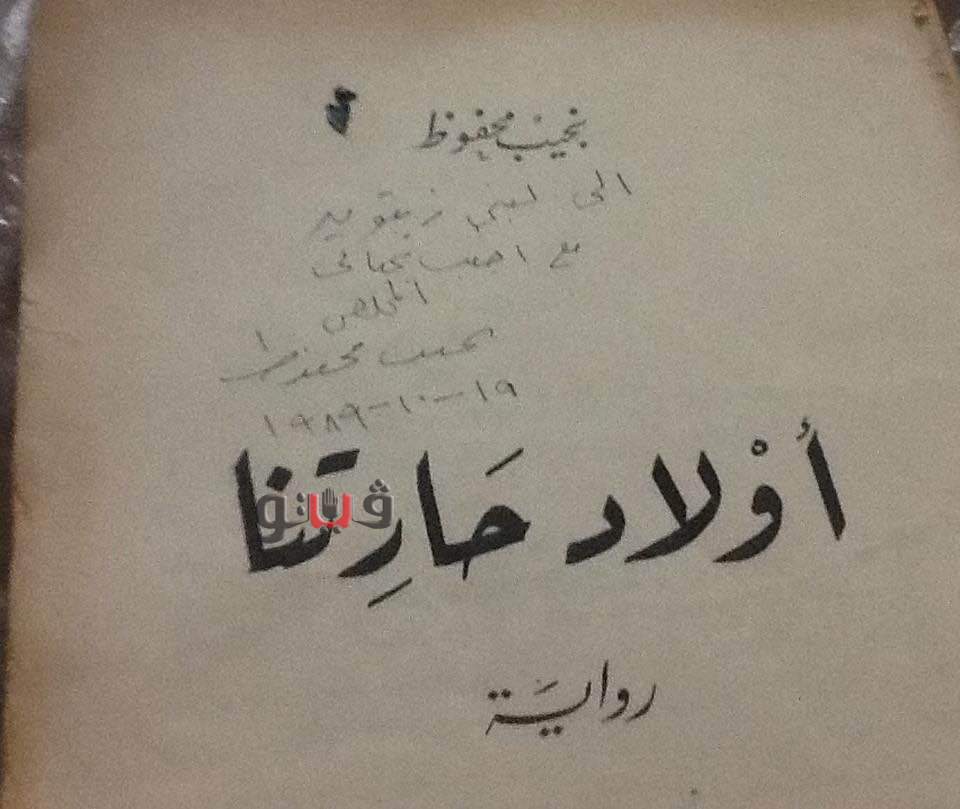 نجيب محفوظ
الى لبنى
مع اطيب تحياتى
المخلص
نجيب محفوظ
١٩-١٠-١٩٨٩
أوْلاد حَارِتنا
ڤيتو
روايَة